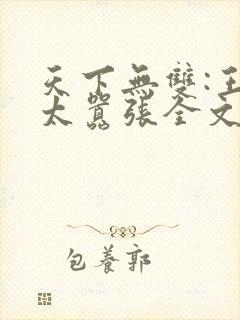 天下無雙:王
太囂張全文
包養郭